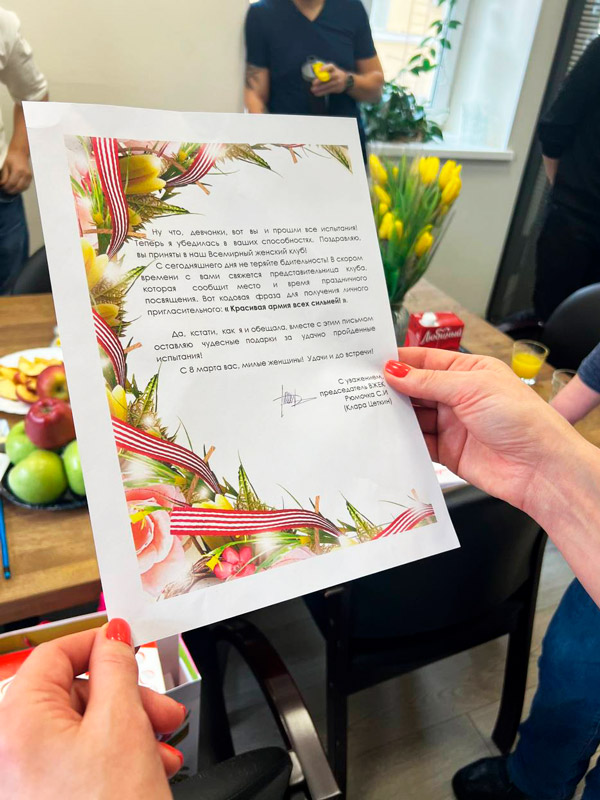 Ну что, девчонки, вот вы и прошли все испытания!
Теперь я убедилась в ваших способностях. Поздравляю,
вы приняты в наш Всемирный женский клуб!
С сегодняшнего дня не теряйте бдительность! В скором
времени с вами свяжется представительница клуба,
которая сообщит место и время праздничного
посвящения. Вот кодовая фраза для получения личного
пригласительного: « Красивая армия всех сильней! ».
Да, кстати, как я и обещала, вместе с этим письмом
оставляю чудесные подарки за удачно пройденные
испытания!
С 8 марта вас, милые женщины! Удачи и до встречи!
С уважением,
председатель ВЖЕК
Рюмочка С.И
(Клара Цеткин)
Любимый